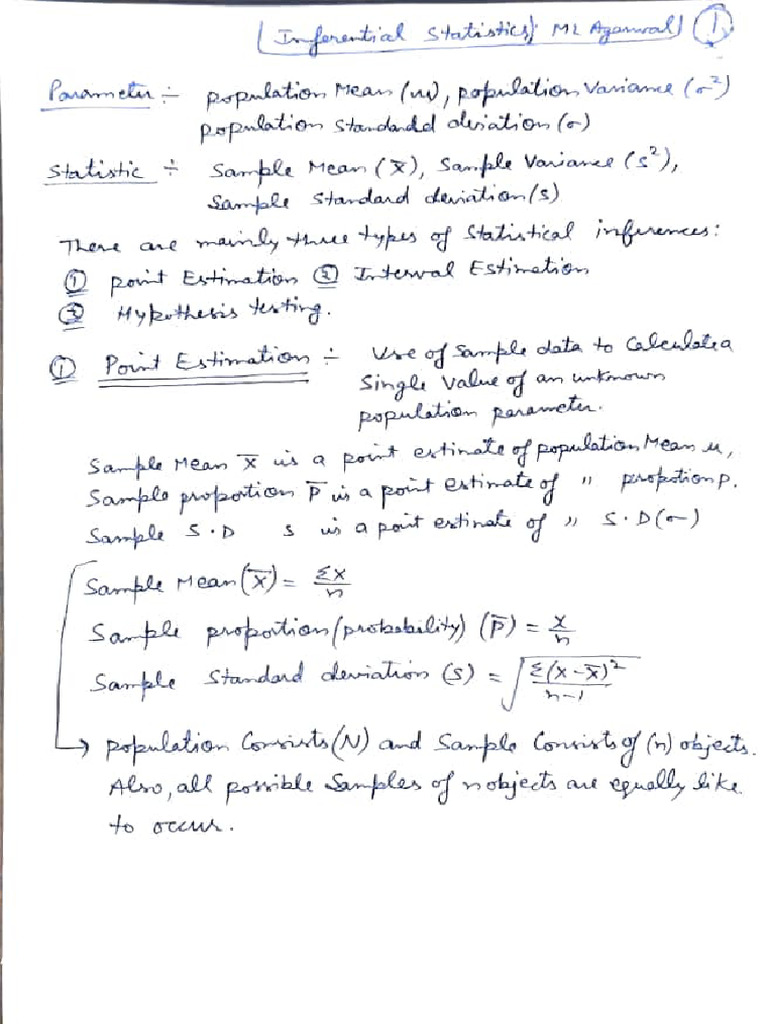 (Inferential Statistics) ML Aggarwal) ①
Parameter ÷ population Mean (μ), population Variance (σ²)
population standard deviation (σ)
Statistic ÷ Sample Mean (x̅), Sample Variance (s²),
Sample Standard deviation (s)
There are mainly three types of statistical inferences:
① point Estimation ② Interval Estimation
③ Hypothesis testing.
① Point Estimation ÷ Use of sample data to Calculate a
Single value of an unknown
population parameter.
Sample Mean x̅ is a point estimate of population Mean μ,
Sample propotion p̅ is a point estimate of " propotion p.
Sample S.D s is a point estimate of " S.D (σ)
Sample Mean (x̅) = Σx/n
Sample propotion (probability) (p̅) = x/n
Sample Standard deviation (s) = √(Σ(x-x̅)²/(n-1))
→ population Consists (N) and Sample Consists of (n) objects.
Also, all possible Samples of n objects are equally like
to occur.